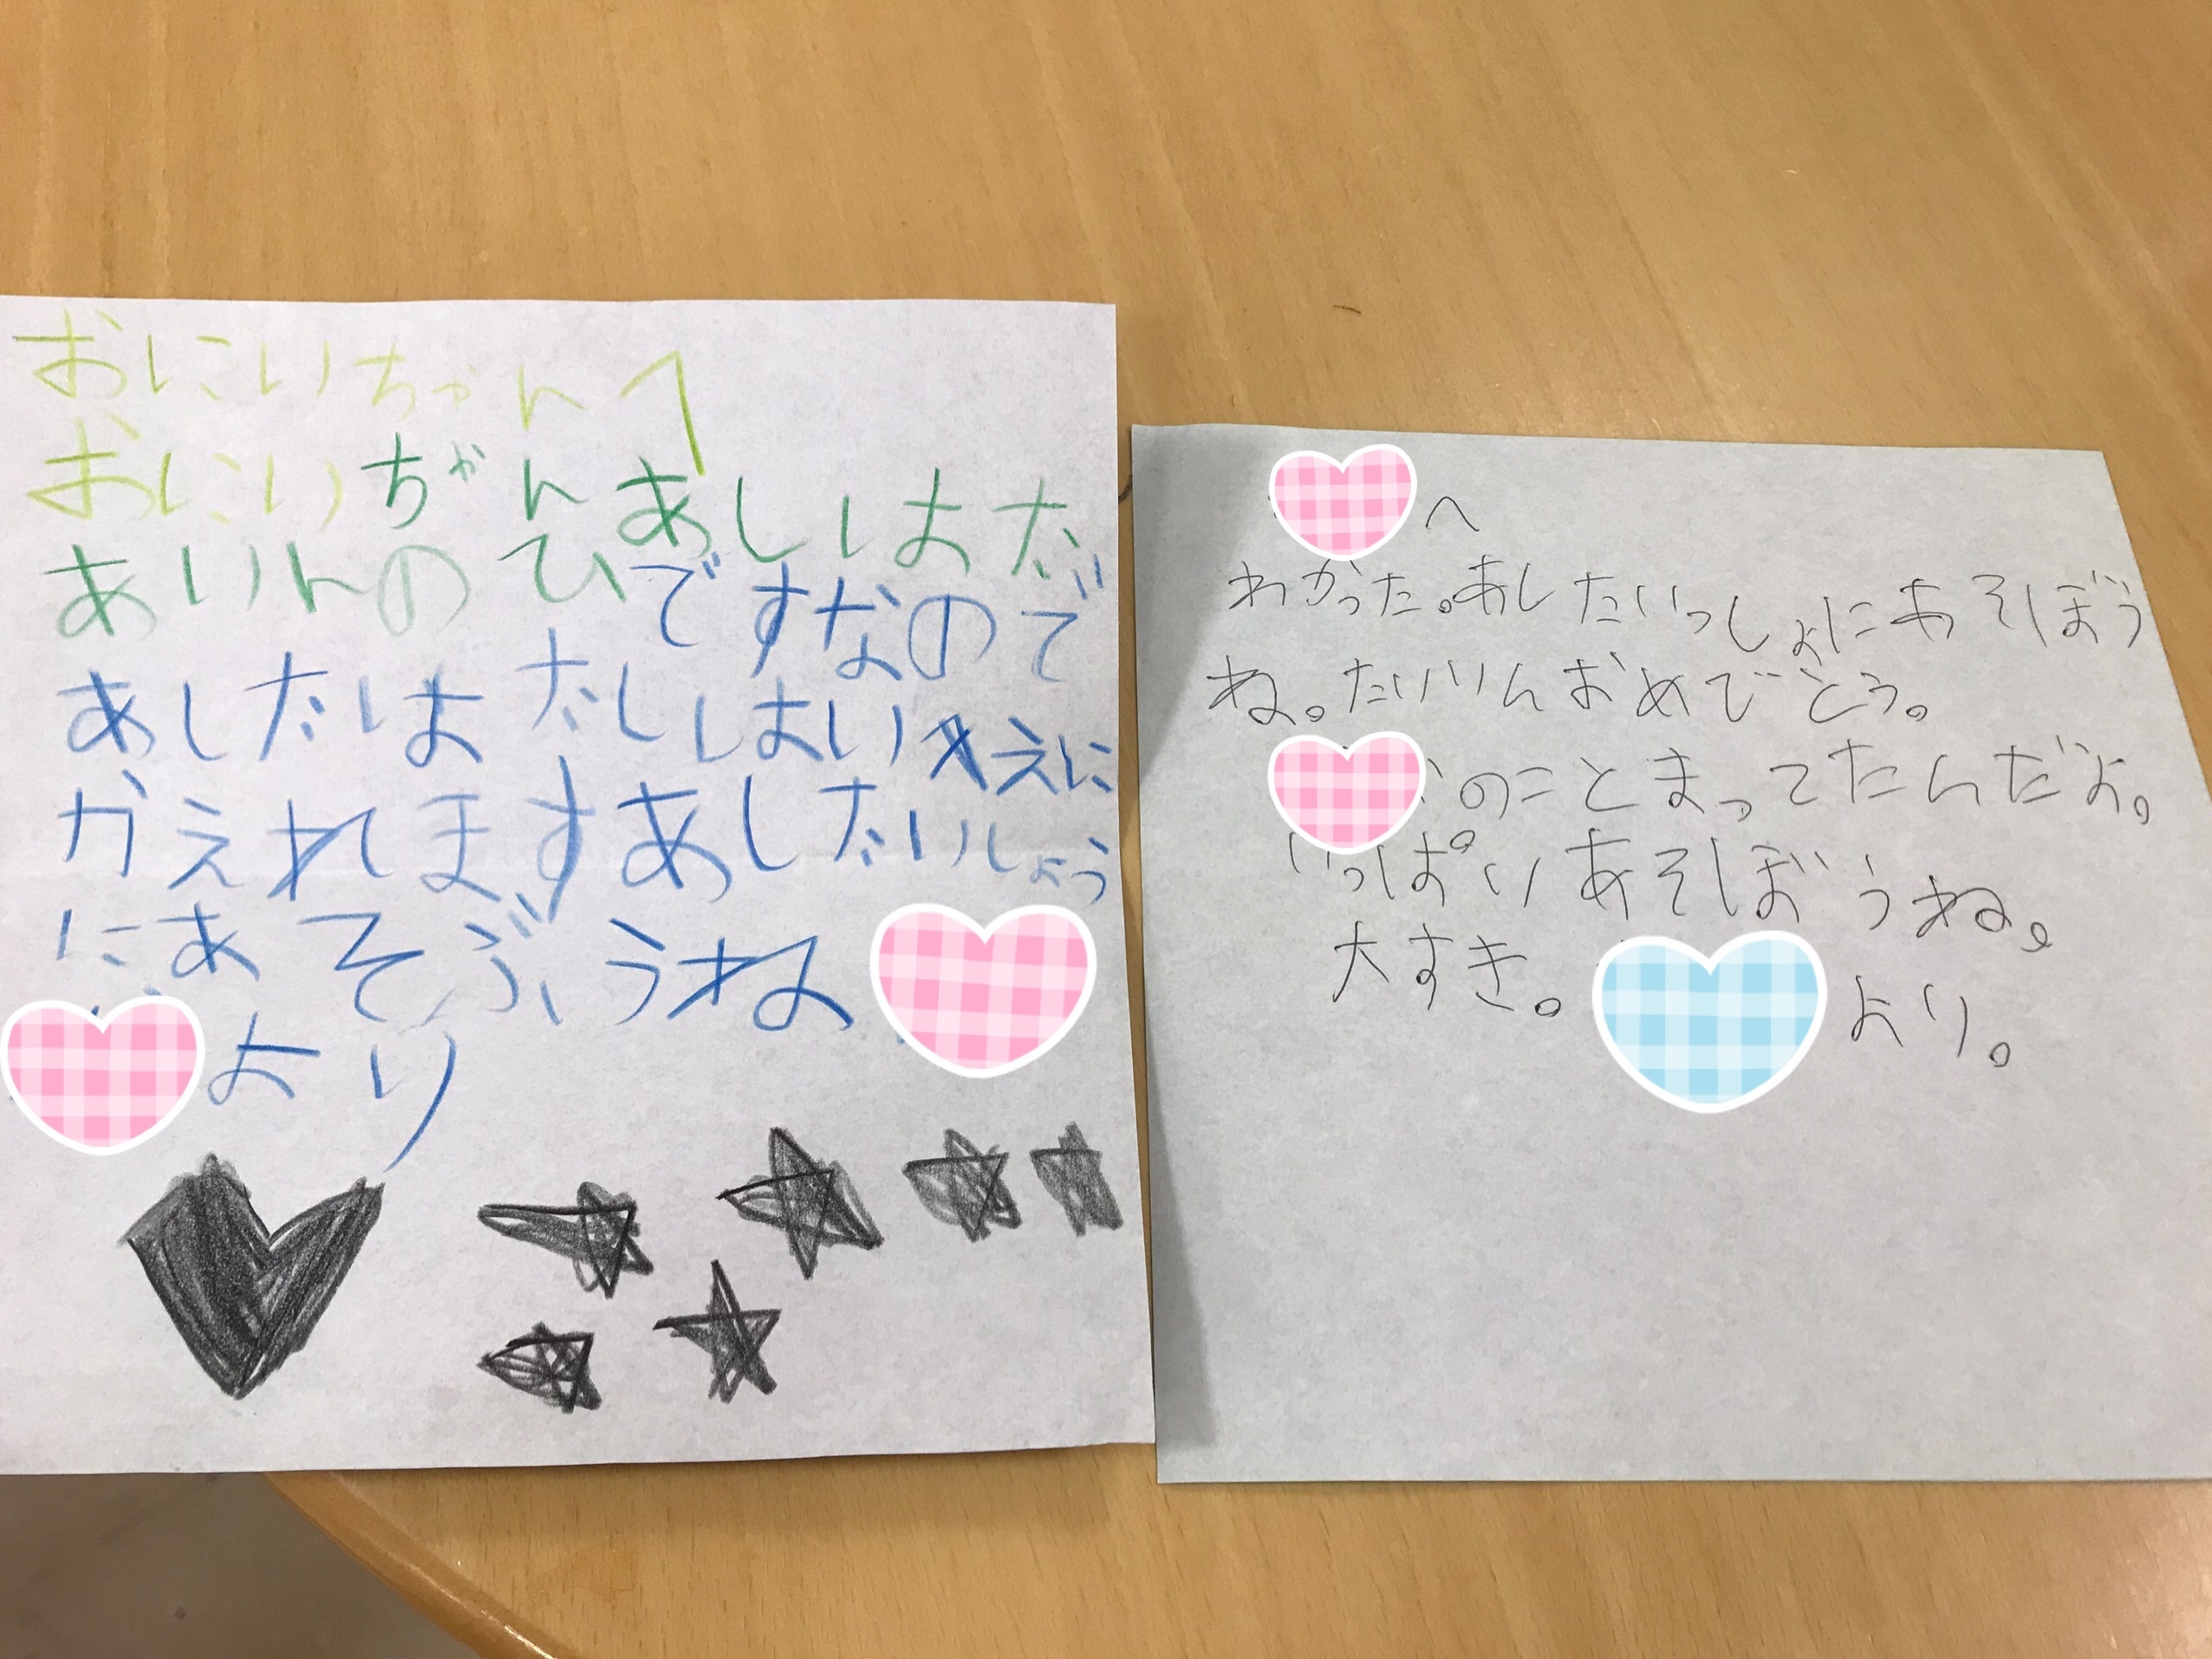 おにいちゃんへ
おにいちゃんあしはた
あいんのひですなので
あしたはたしはいえに
かえれますあしたいしょう
にあそぶうね
より
へ
わかった。あしたいっしょにあそぼう
ね。たいいんおめでとう。
のことまってたんだよ。
いっぱいあそぼうね。
大すき。 より。